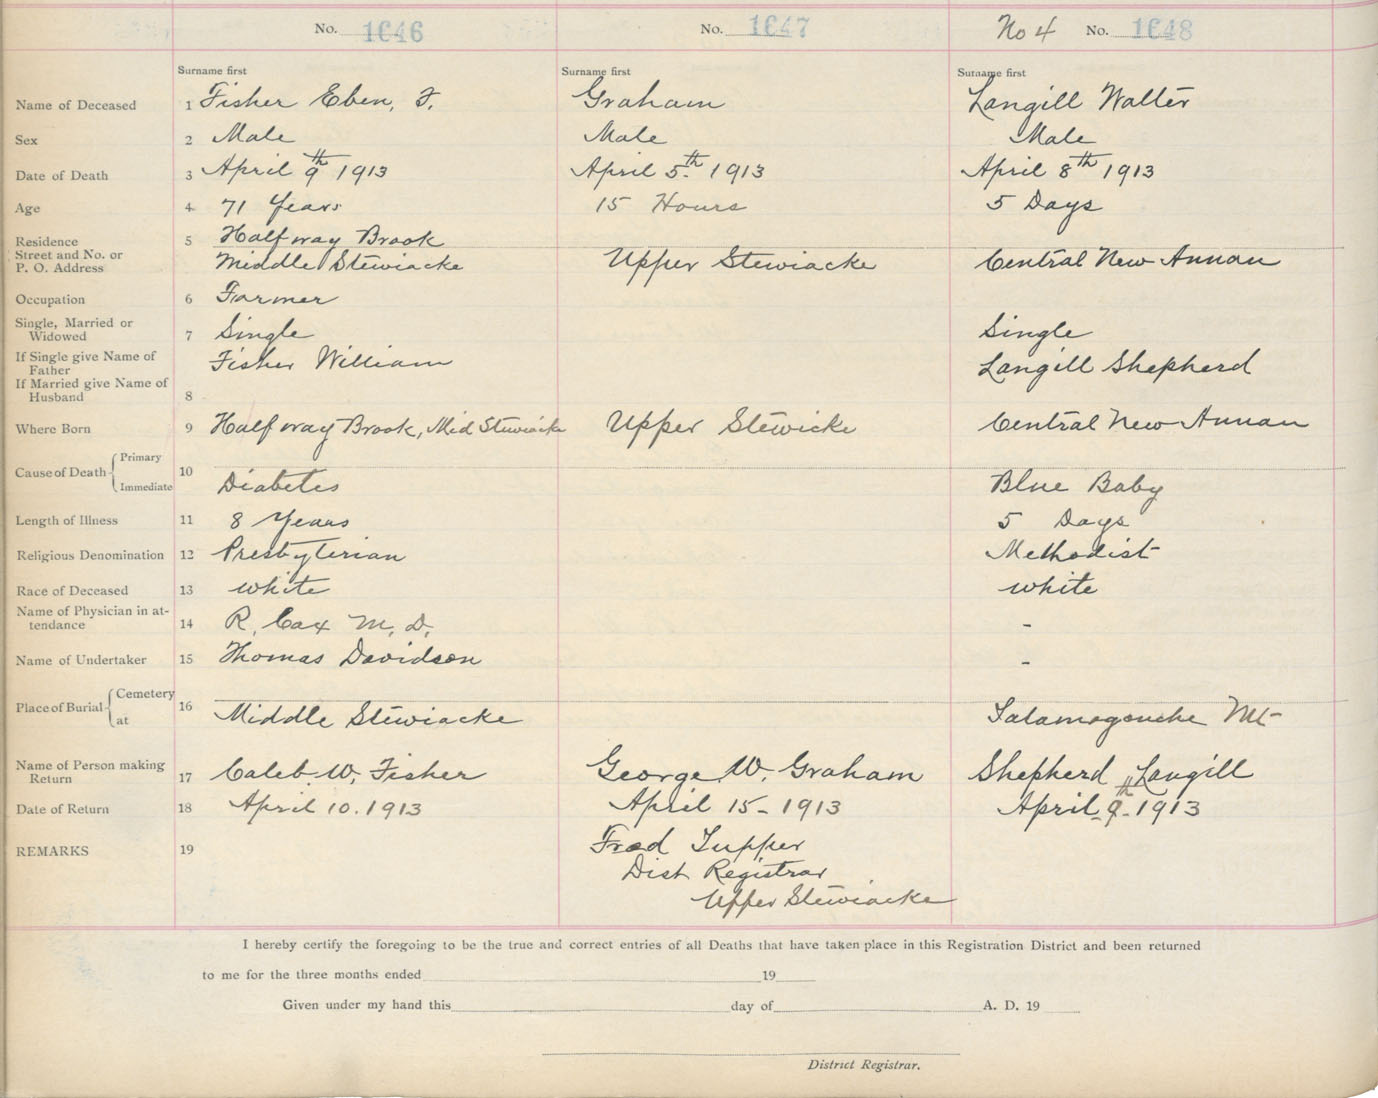 No. 1646 No. 1647 No 4 No. 1648
Surname first Surname first Surname first
Name of Deceased 1 Fisher Eben, F. Graham Langill Walter
Sex 2 Male Male Male
Date of Death 3 April 9th 1913 April 5th 1913 April 8th 1913
Age 4 71 Years 15 Hours 5 Days
Residence 5 Halfway Brook
Street and No. or
P. O. Address Middle Stewiacke Upper Stewiacke Central New Annan
Occupation 6 Farmer
Single, Married or
Widowed 7 Single Single
If Single give Name of
Father Fisher William Langill Shepherd
If Married give Name of
Husband 8
Where Born 9 Halfway Brook, Mid Stewiacke Upper Stewicke Central New Annan
Cause of Death Primary 10
Immediate Diabetes Blue Baby
Length of Illness 11 8 Years 5 Days
Religious Denomination 12 Presbyterian Methodist
Race of Deceased 13 white white
Name of Physician in at-
tendance 14 R. Cox M. D. -
Name of Undertaker 15 Thomas Davidson -
Place of Burial Cemetery 16
at Middle Stewiacke Tatamagouche Mt
Name of Person making
Return 17 Caleb W. Fisher George W. Graham Shepherd Langill
Date of Return 18 April 10. 1913 April 15 - 1913 April 9th - 1913
REMARKS 19 Fred Tupper
Dist Registrar
Upper Stewiacke
I hereby certify the foregoing to be the true and correct entries of all Deaths that have taken place in this Registration District and been returned
to me for the three months ended 19
Given under my hand this day of A. D. 19
District Registrar.